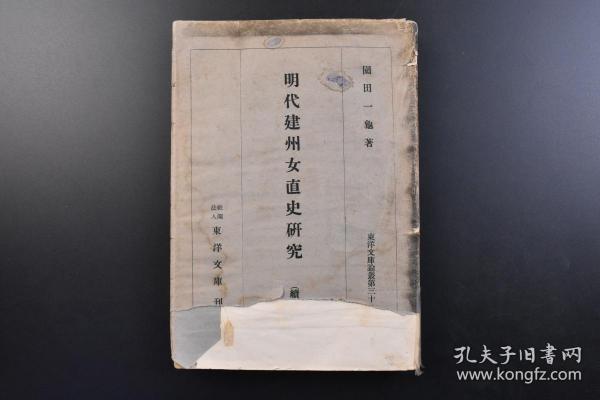 園田一龜著
明代建州女直史研究 (續
東洋文庫論叢第三十
財團
法人
東洋文庫刊
孔夫子旧书网
www.kongfz.com